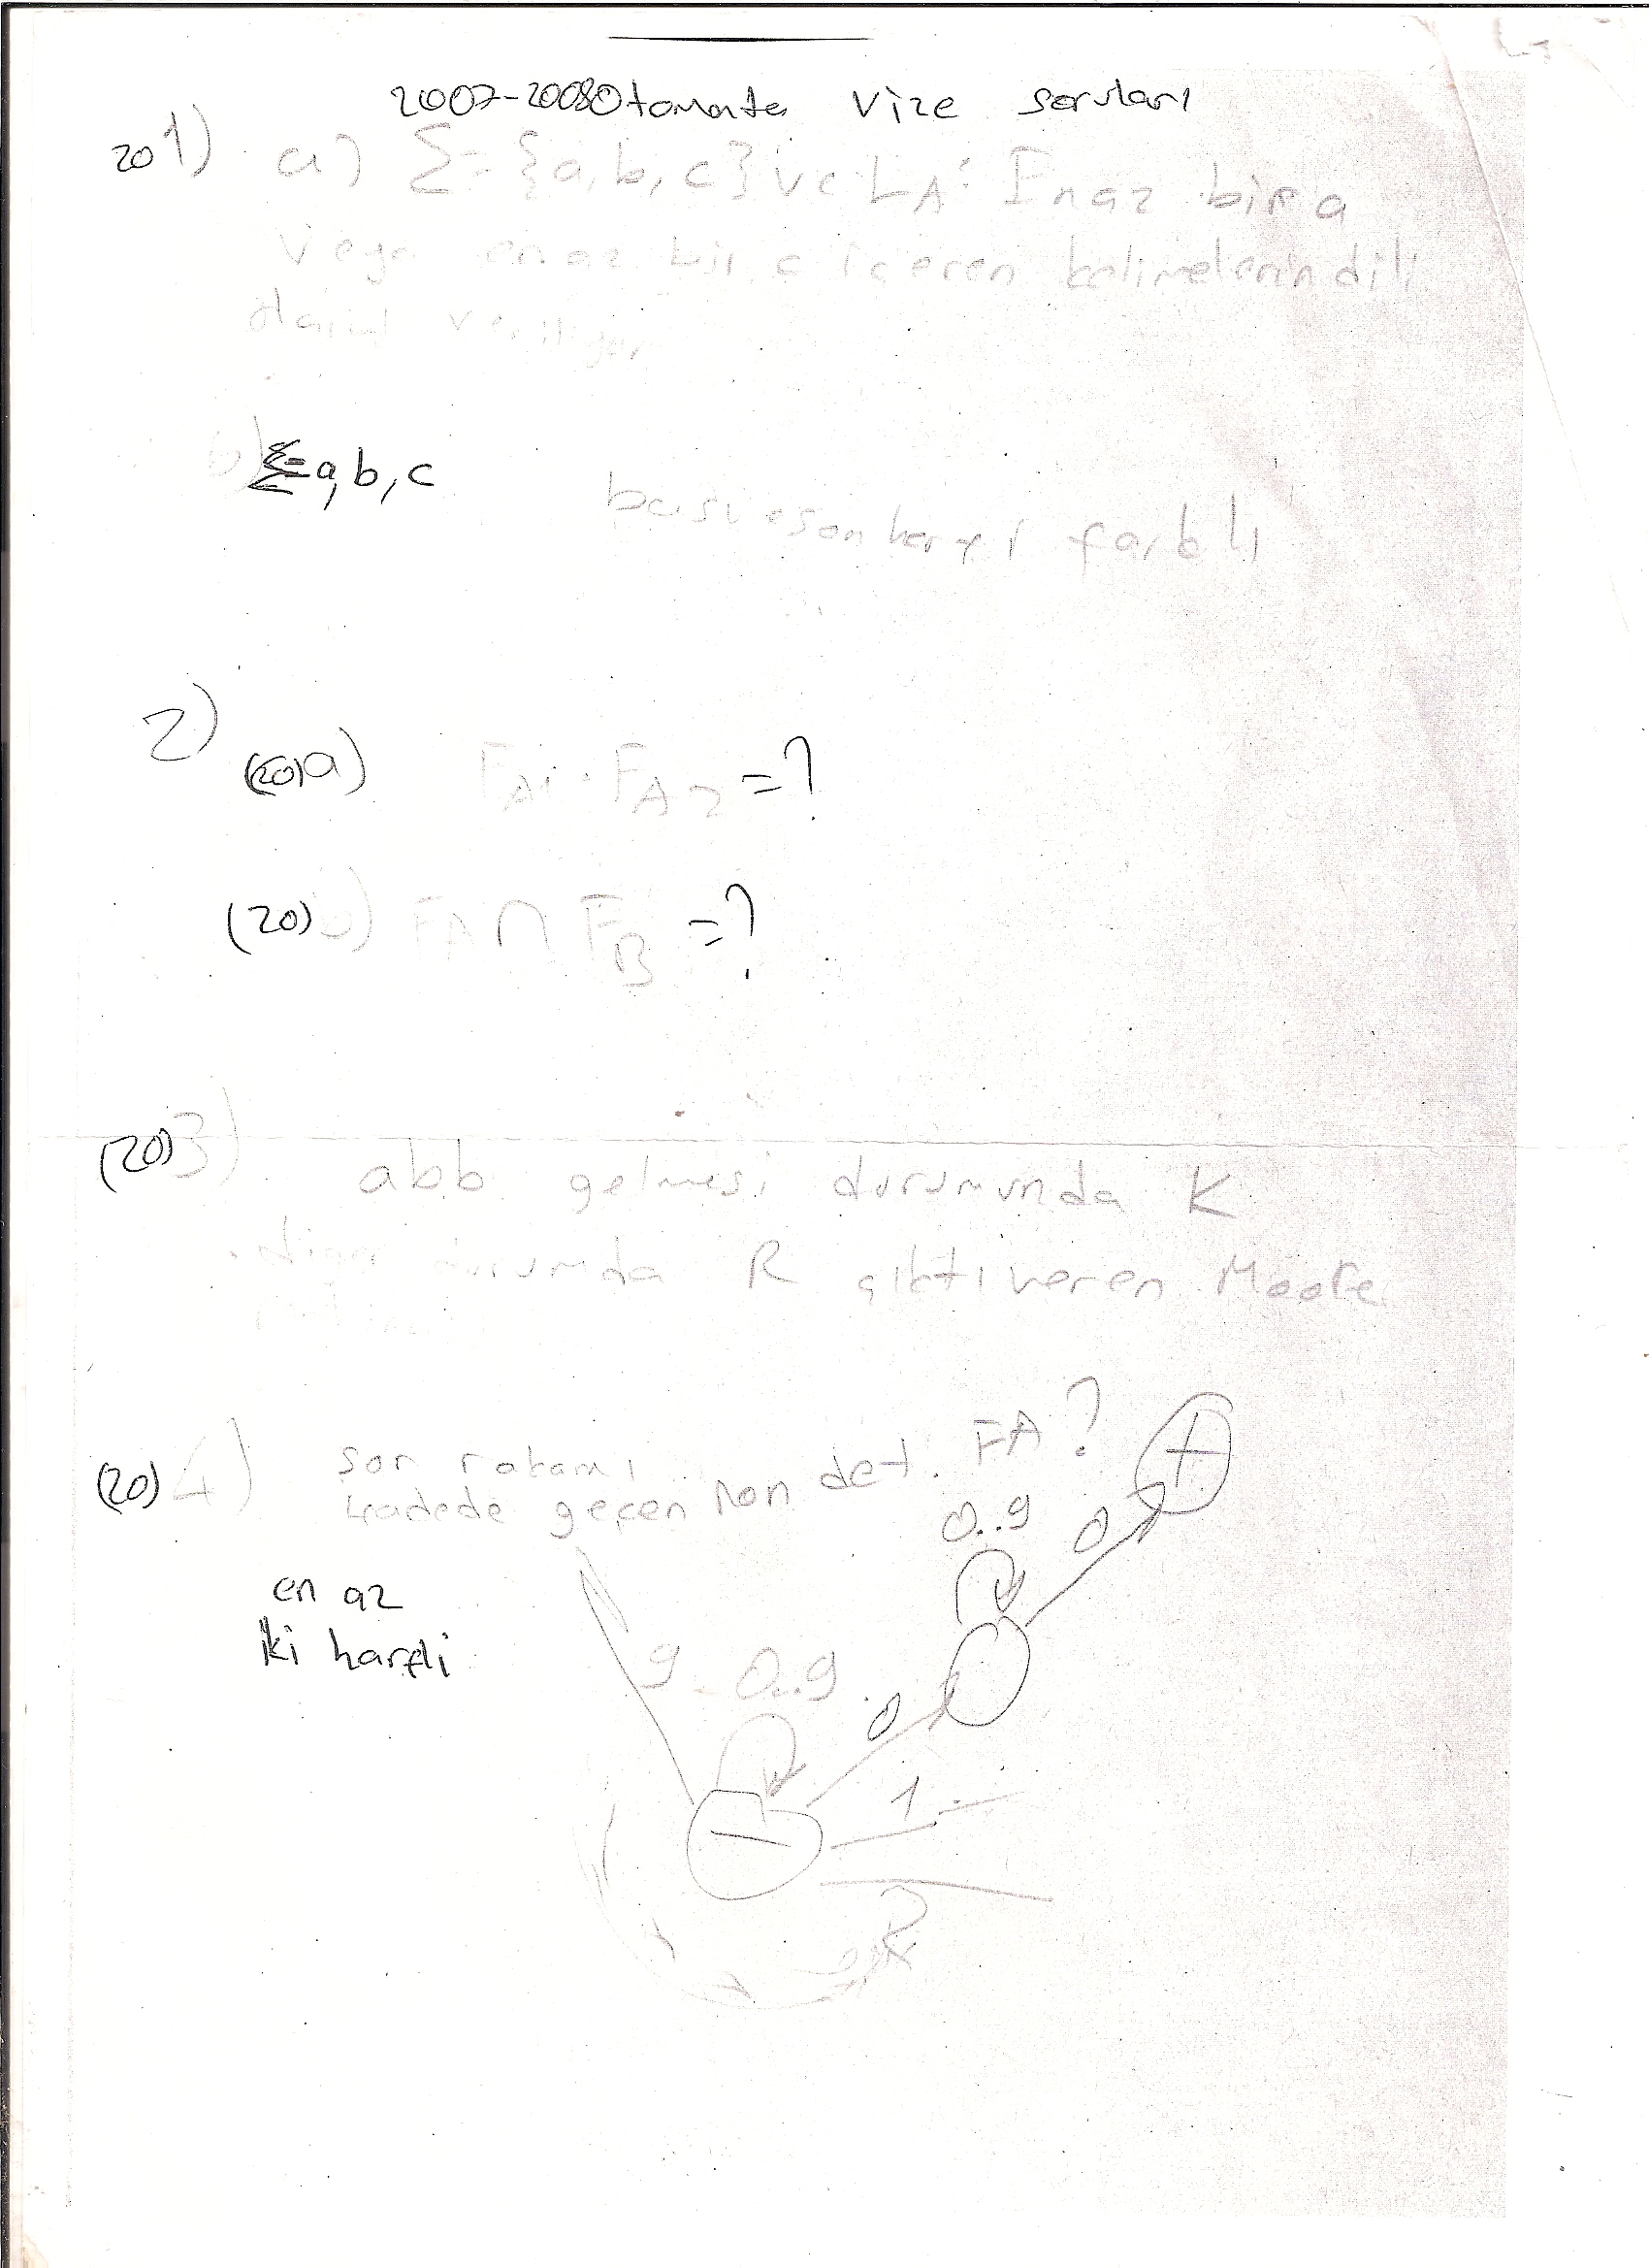 2007-2008 Otomata Vize soruları
20 1) a) Σ={a,b,c} ve LA: En az bir a
veya en az bir c içeren kelimelerin dili
olarak veriliyor
b) Σ=a,b,c
baş ve son harfi farklı
2)
(20) a) FA1 . FA2 =?
(20) b) FA ∩ FB =?
(20) 3) abb gelmesi durumunda K
diğer durumda R çıktı veren Moore
(20) 4) son rakamı
ifadede geçen Non det. FA?
en az
iki harfli
+
0..9
0
9
0..9
0
1
-
2